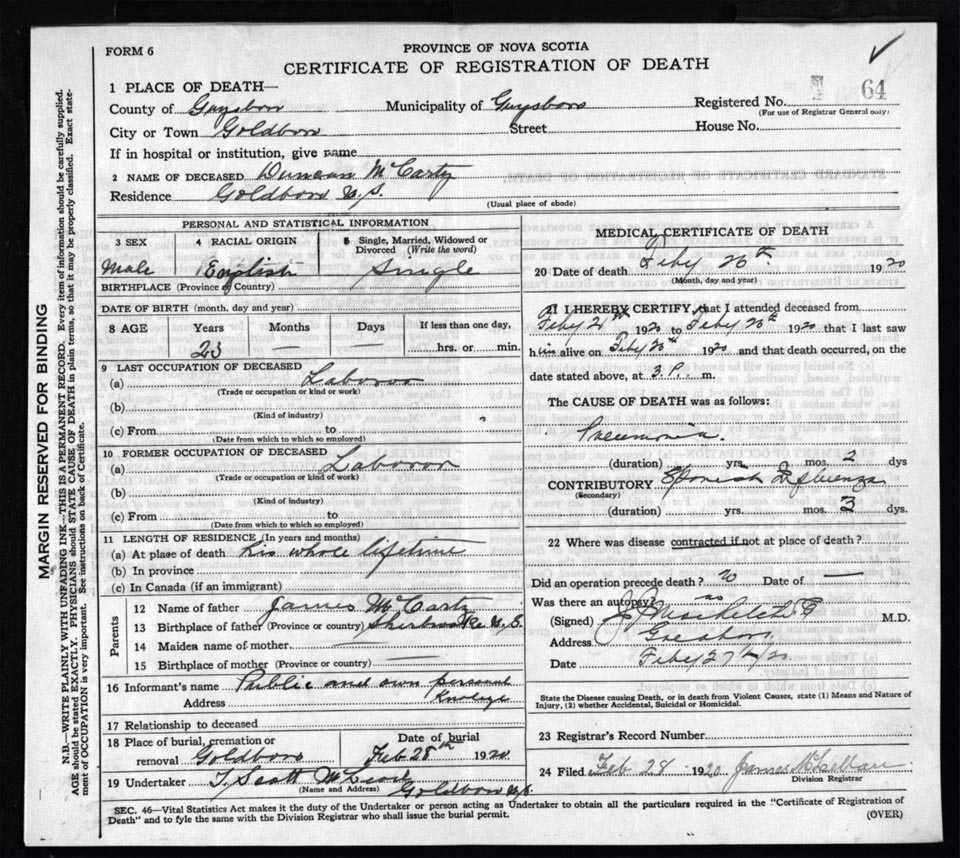 FORM 6
PROVINCE OF NOVA SCOTIA
CERTIFICATE OF REGISTRATION OF DEATH
64
1 PLACE OF DEATH—
County of Guysboro Municipality of Guysboro Registered No.
(For use of Registrar General only)
City or Town Goldboro Street House No.
If in hospital or institution, give name
2 NAME OF DECEASED Duncan McCarty
Residence Goldboro N.S.
(Usual place of abode)
PERSONAL AND STATISTICAL INFORMATION
3 SEX 4 RACIAL ORIGIN 5 Single, Married, Widowed or Divorced (Write the word)
Male English Single
BIRTHPLACE (Province or Country)
DATE OF BIRTH (month, day and year)
8 AGE Years Months Days If less than one day,
23 — — hrs. or min.
9 LAST OCCUPATION OF DECEASED
(a) Laboror
(Trade or occupation or kind or work)
(b)
(Kind of industry)
(c) From to
(Date from which to which so employed)
10 FORMER OCCUPATION OF DECEASED
(a) Laboror
(Trade or occupation or kind of work)
(b)
(Kind of industry)
(c) From to
(Date from which to which so employed)
11 LENGTH OF RESIDENCE (In years and months)
(a) At place of death his whole lifetime
(b) In province
(c) In Canada (if an immigrant)
Parents
12 Name of father James McCarty
13 Birthplace of father (Province or country) Sherbrooke N.S.
14 Maiden name of mother
15 Birthplace of mother (Province or country) —
16 Informant's name Public and own personal
Address
17 Relationship to deceased
18 Place of burial, cremation or removal Goldboro
Date of burial Feb 28th 1920
19 Undertaker T. Scott
(Name and Address) Goldboro N.S.
MEDICAL CERTIFICATE OF DEATH
20 Date of death Feby 26th 1920
(Month, day and year)
21 I HEREBY CERTIFY, that I attended deceased from
Feby 1920 to Feby 1920 that I last saw
him alive on Feby 1920 and that death occurred, on the
date stated above, at 3 P. m.
The CAUSE OF DEATH was as follows:
Pneumonia.
(duration) yrs. mos. 2 dys
CONTRIBUTORY Spanish Influenza
(Secondary)
(duration) yrs. mos. 3 dys.
22 Where was disease contracted if not at place of death?
Did an operation precede death? no Date of —
Was there an autopsy? no
(Signed) M.D.
Address
Date Feby 27th/20
State the Disease causing Death, or in death from Violent Causes, state (1) Means and Nature of
Injury, (2) whether Accidental, Suicidal or Homicidal.
23 Registrar's Record Number
24 Filed Feb 28 1920 James
Division Registrar
SEC. 46—Vital Statistics Act makes it the duty of the Undertaker or person acting as Undertaker to obtain all the particulars required in the "Certificate of Registration of
Death" and to fyle the same with the Division Registrar who shall issue the burial permit.
(OVER)
MARGIN RESERVED FOR BINDING
N.B.—WRITE PLAINLY WITH UNFADING INK—THIS IS A PERMANENT RECORD. Every item of information should be carefully supplied.
AGE should be stated EXACTLY. PHYSICIANS should STATE CAUSE OF DEATH in plain terms, so that it may be properly classified. Exact state-
ment of OCCUPATION is very important. See instructions on back of Certificate.